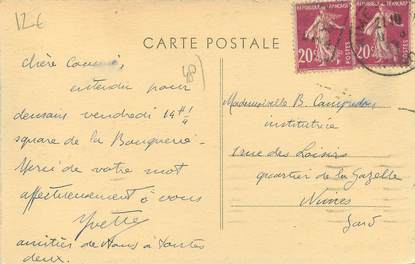 12€
CARTE POSTALE
48
RÉPUBLIQUE FRANÇAISE
20c
POSTES
20c
POSTES
21 10
chère
entendu pour
demain vendredi 14 H ¼
square de la Bouquerie.
Merci de votre mot
affectueusement à vous
Yvette
amitiés de à toutes
deux.
Mademoiselle B.
institutrice
rue des Loisirs
quartier de la Gazelle
Nimes
Gard